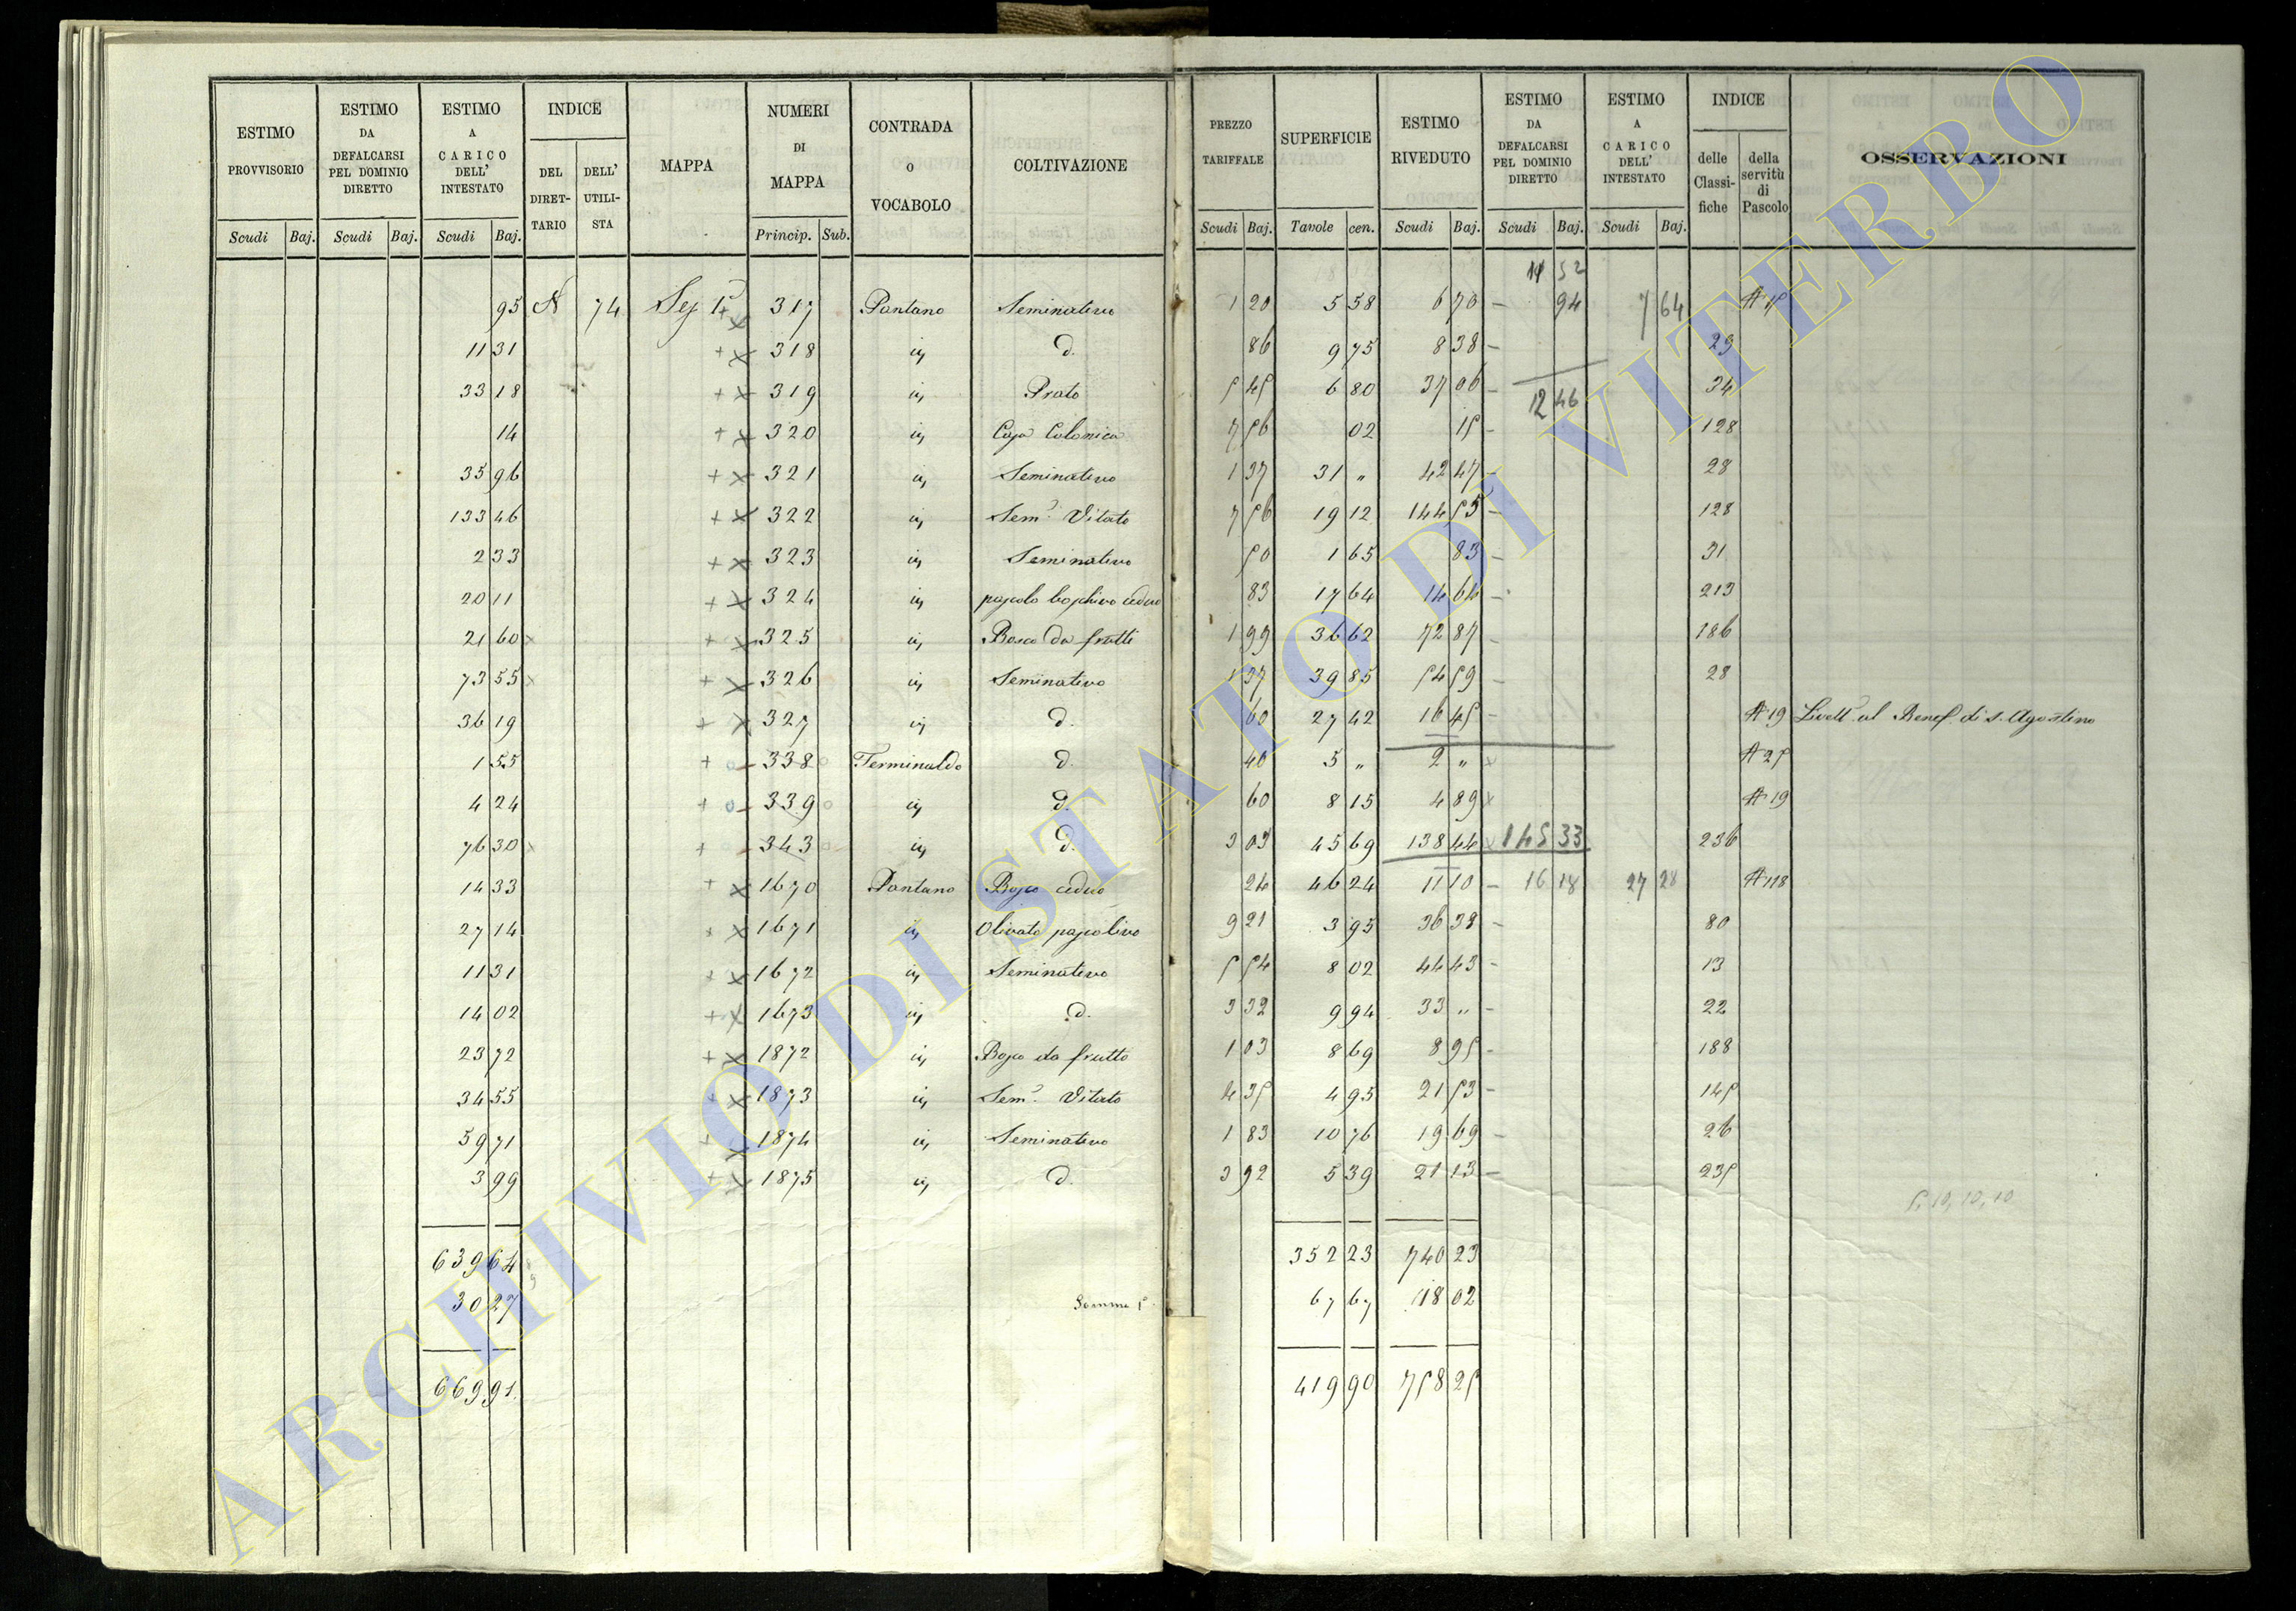 ESTIMO PROVVISORIO | ESTIMO DA DEFALCARSI PEL DOMINIO DIRETTO | ESTIMO A CARICO DELL' INTESTATO | INDICE | MAPPA | NUMERI DI MAPPA | CONTRADA O VOCABOLO | COLTIVAZIONE | PREZZO TARIFFALE | SUPERFICIE | ESTIMO RIVEDUTO | ESTIMO DA DEFALCARSI PEL DOMINIO DIRETTO | ESTIMO A CARICO DELL' INTESTATO | INDICE | OSSERVAZIONI
DEL DIRETTARIO | DELL' UTILISTA | delle Classifiche | della servitù di Pascolo
Scudi | Baj. | Scudi | Baj. | Scudi | Baj. | Princip. | Sub. | Scudi | Baj. | Tavole | cen. | Scudi | Baj. | Scudi | Baj. | Scudi | Baj.
11 52
95 | N | 74 | Sez 1ª + x | 317 | Pantano | Seminativo | 1 20 | 5 58 | 6 70 – | 94 | 7 64 | A 15
11 31 | + x | 318 | id | d. | 86 | 9 75 | 8 38 – | 29
33 18 | + x | 319 | id | Prato | 5 45 | 6 80 | 37 06 – | 12 46 | 34
14 | + x | 320 | id | Casa Colonica | 7 56 | 02 | 15 – | 128
35 96 | + x | 321 | id | Seminativo | 1 37 | 31 „ | 42 47 – | 28
133 46 | + x | 322 | id | Semº Vitato | 7 56 | 19 12 | 144 55 – | 128
2 33 | + x | 323 | id | Seminativo | 50 | 1 65 | 83 – | 31
20 11 | + x | 324 | id | pascolo boschivo ceduo | 83 | 17 64 | 14 64 – | 213
21 60 x | + x | 325 | id | Bosco da frutti | 1 99 | 36 62 | 72 87 – | 186
73 55 x | + x | 326 | id | Seminativo | 1 37 | 39 85 | 54 59 – | 28
36 19 | + x | 327 | id | d. | 60 | 27 42 | 16 45 – | A 19 | Livell. al Benef. di S. Agostino
1 55 | + o – | 338 o | Terminaldo | d. | 40 | 5 „ | 2 „ x | A 25
4 24 | + o – | 339 o | id | d. | 60 | 8 15 | 4 89 x | A 19
76 30 x | + o – | 343 o | id | d. | 3 03 | 45 69 | 138 44 x | 145 33 | 236
14 33 | + x | 1670 | Pantano | Bosco ceduo | 24 | 46 24 | 11 10 – | 16 18 | 27 28 | A 118
27 14 | + x | 1671 | id | Olivato pascolivo | 9 21 | 3 95 | 36 38 – | 80
11 31 | + x | 1672 | id | Seminativo | 5 54 | 8 02 | 44 43 – | 13
14 02 | + x | 1673 | id | d. | 3 32 | 9 94 | 33 „ – | 22
23 72 | + x | 1872 | id | Bosco da frutto | 1 03 | 8 69 | 8 95 – | 188
34 55 | + x | 1873 | id | Semº Vitato | 4 35 | 4 95 | 21 53 – | 145
59 71 | + x | 1874 | id | Seminativo | 1 83 | 10 76 | 19 69 – | 26
3 99 | + x | 1875 | id | d. | 3 92 | 5 39 | 21 13 – | 235
5, 10, 12, 10
639 64 | 352 23 | 740 23
30 27 | Somma | 67 67 | 18 02
669 91 | 419 90 | 758 25
ARCHIVIO DI STATO DI VITERBO